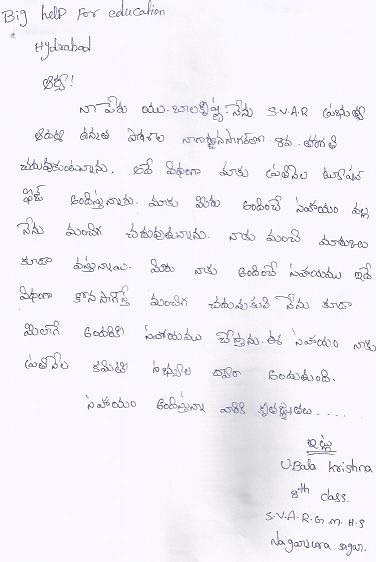 Big help For education
Hydrabad
ఆర్యా!
నా పేరు యు. బాలక్రిష్ణ. నేను S.V.A.R ప్రభుత్వ
ఉన్నత పాఠశాల నాగార్జునసాగర్‌లో 8వ తరగతి
చదువుకుంటున్నాను. అదే విధంగా మాకు ప్రతినెల
ఫీజ్ అందిస్తున్నారు. మాకు మీరు అందించే సహాయం వల్ల
నేను మంచిగ చదువుతున్నాను. నాకు మంచి మార్కులు
కూడా వస్తున్నాయి. మీరు నాకు అందించే సహాయము ఇదే
విధంగా కొనసాగిస్తే మంచిగ చదువుకుని నేను కూడా
మీలాగే అందరికి సహాయము చేస్తాను. ఈ సహాయం నాకు
ప్రతినెల కమిటి సభ్యుల ద్వారా అందుతుంది.
సహాయం అందిస్తున్నా వారికి కృతజ్ఞతలు....
ఇట్లు
U.Bala krishna
8th class.
S.V.A.R.G.M.H.S
Nagarjuna sagar.